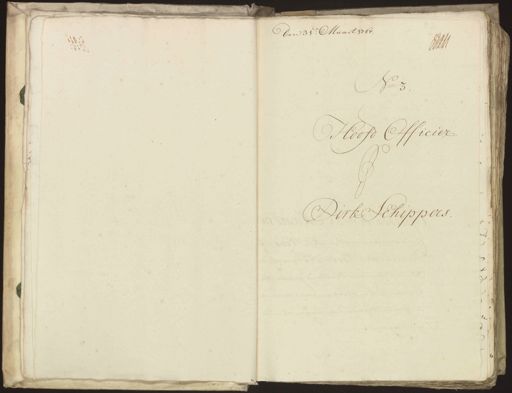 Den 31 Maart
No 3.
Hoofd Officier
Dirk Schippers.